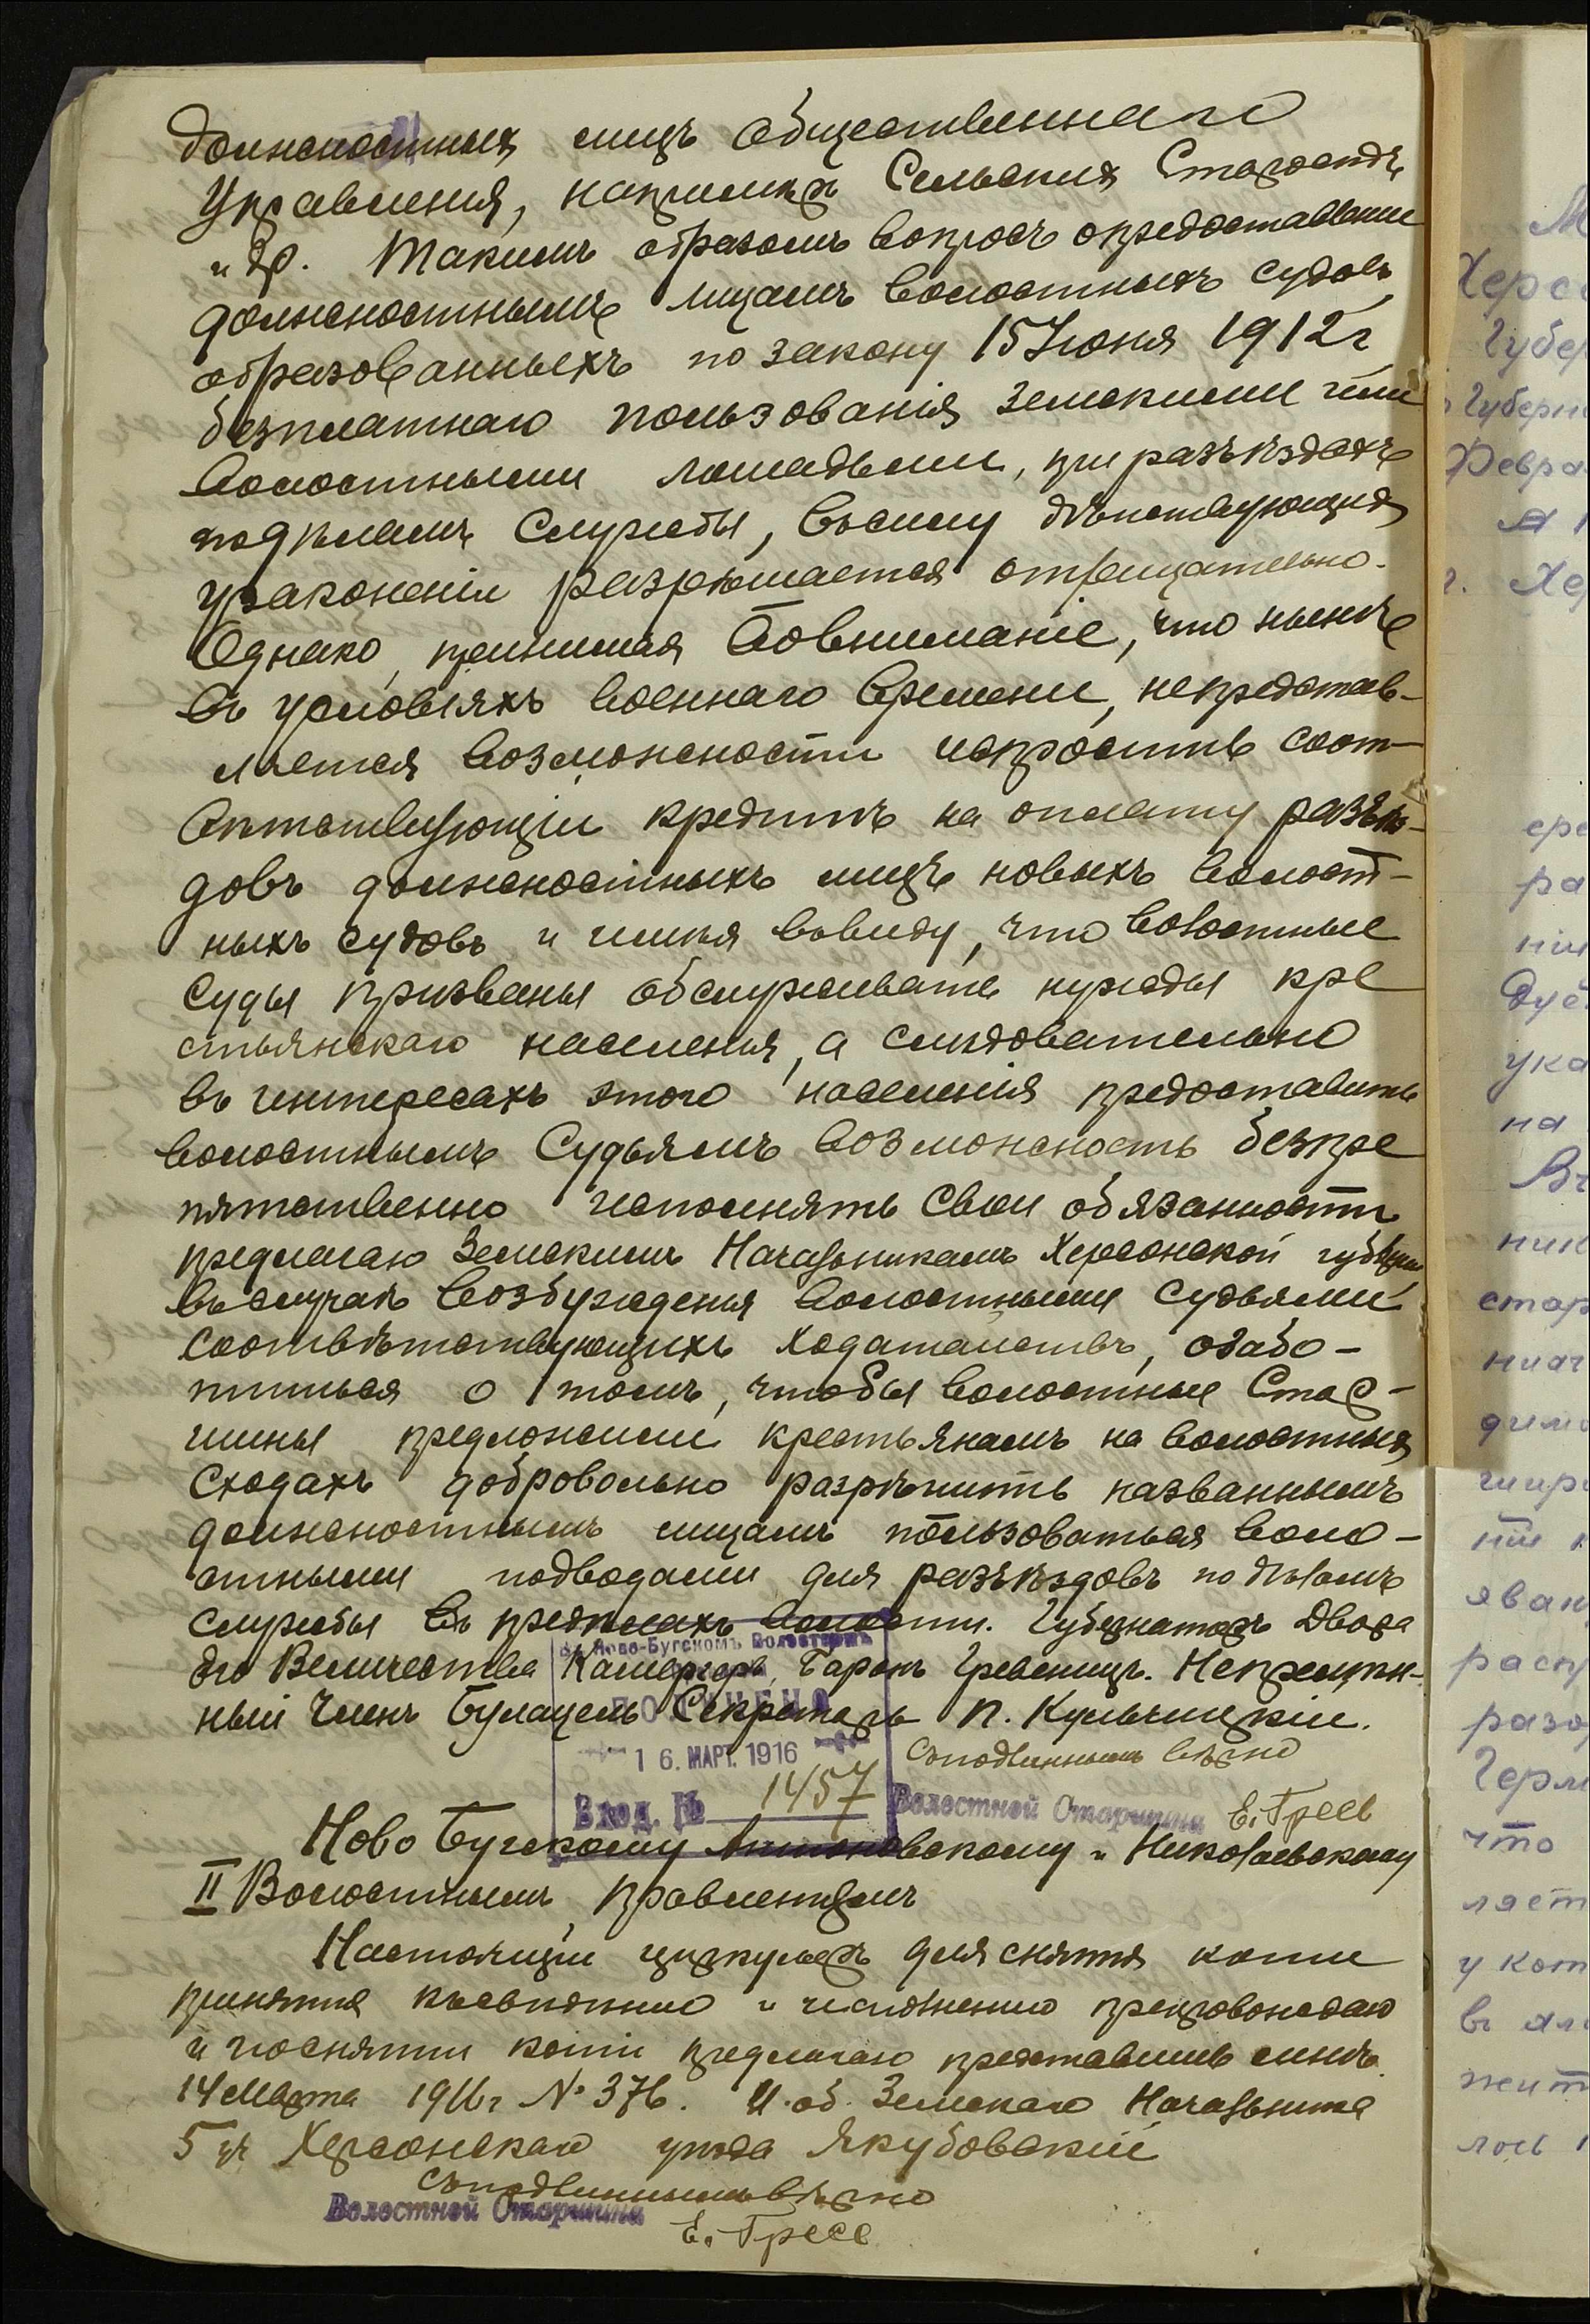 должностныхъ лицъ Общественнаго
Управленія, напримѣръ Сельскихъ Старостъ
и др. Такимъ образомъ вопросъ опредоставленіи
должностнымъ лицамъ волостныхъ судовъ
образованныхъ по закону 15 Іюня 1912 г
безплатнаго пользованія земскими или
волостными лошадьми, при разъѣздахъ
подѣламъ службы, въсилу дѣйствующихъ
узаконеній разрѣшается отрицательно.
Однако, принимая Вовниманіе, что нынѣ
въ условіяхъ военнаго времени, непредстав-
ляется возможности испросить соот-
вѣтствующій кредитъ на оплату разъѣз-
довъ должностныхъ лицъ новыхъ волост-
ныхъ судовъ и имѣя ввиду, что волостные
суды призваны обслуживать нужды кре
стьянскаго населенія, а слѣдовательно
въ интересахъ этого населенія предоставить
волостнымъ Судьямъ возможность безпре
пятственно исполнять свои обязанности
предлагаю Земскимъ Начальникамъ Херсонской губерніи
въслучаѣ возбужденія волостными судьями
соотвѣтствующихъ ходатайствъ, озабо-
титься о томъ, чтобы волостные Стар-
шины предложили крестьянамъ на волостныхъ
Сходахъ добровольно разрѣшить названнымъ
должностнымъ лицамъ пользоваться воло-
стными подводами для разъѣздовъ по дѣламъ
службы въ предѣлахъ волости. Губернаторъ Двора
Его Величества Камергеръ, Баронъ Гревеницъ. Непремѣн-
ный Членъ Булацель Секретарь П. Кульчицкій.
Въ Ново-Бугскомъ Волостномъ
ПОЛУЧЕНО
16. МАРТ. 1916
Вход. № 1457
Съподлиннымъ вѣрно
Волостной Старшина Е. Гресь
Ново Бугскому Антоновскому и Николаевскому
II Волостнымъ правленіямъ
Настоящій циркуляръ для снятія копіи
принятія къ свѣдѣнію и исполненію препровождаю
и поснятіи копіи предлагаю представить мнѣ.
14 Марта 1916 г № 376. И. об. Земскаго Начальника
5 уч Херсонскаго уѣзда Якубовскій
Съподлиннымъ вѣрно
Волостной Старшина
Е. Гресь